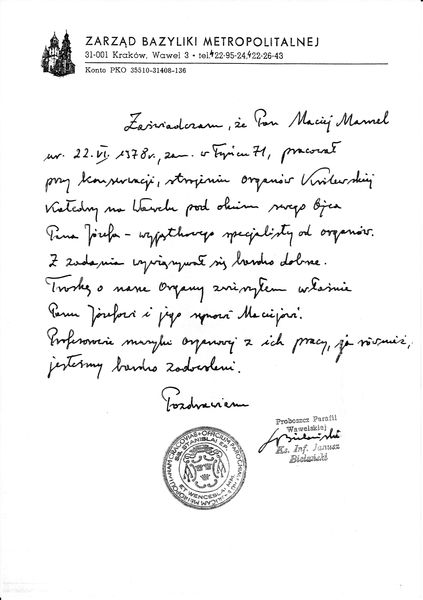 ZARZĄD BAZYLIKI METROPOLITALNEJ
31-001 Kraków, Wawel 3 • tel. 422-95-24, 422-26-43
Konto PKO 35510-31408-136
Zaświadczam, że Pan Maciej Mamzel
ur. 22.VI. 1978 r., zam. w 71, pracował
przy konserwacji, strojeniu organów Królewskiej
Katedry na Wawelu pod okiem swego Ojca
Pana Józefa – wyjątkowego specjalisty od organów.
Z zadania wywiązywał się bardzo dobrze.
Troskę o nasze Organy zwierzyłem właśnie
Panu Józefowi i jego synowi Maciejowi.
Profesorowie muzyki organowej z ich pracy, ja również,
jesteśmy bardzo zadowoleni.
Pozdrawiam
Proboszcz Parafii
Wawelskiej
Ks. Inf. Janusz
Bielański